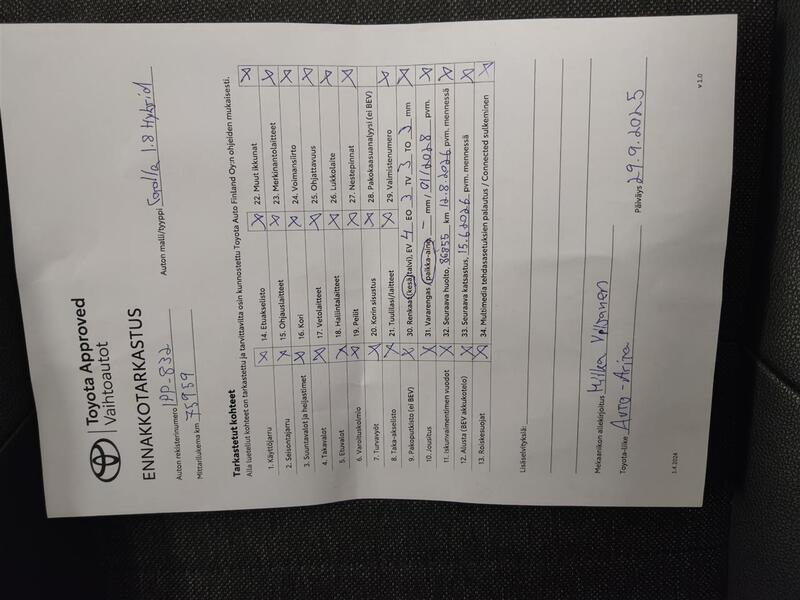 Toyota Approved
Vaihtoautot
ENNAKKOTARKASTUS
Auton rekisterinumero IPP-832 Auton malli/tyyppi Corolla 1.8 Hybrid
Mittarilukema km 75959
Tarkastetut kohteet
Alla luetellut kohteet on tarkastettu ja tarvittavilta osin kunnostettu Toyota Auto Finland Oy:n ohjeiden mukaisesti.
1. Käyttöjarru X 14. Etuakselisto X 22. Muut ikkunat X
2. Seisontajarru X 15. Ohjauslaitteet X 23. Merkinantolaitteet X
3. Suuntavalot ja heijastimet X 16. Kori X 24. Voimansiirto X
4. Takavalot X 17. Vetolaitteet X 25. Ohjattavuus X
5. Etuvalot X 18. Hallintalaitteet X 26. Lukkolaite X
6. Varoituskolmio X 19. Peilit X 27. Nestepinnat X
7. Turvavyöt X 20. Korin sisustus X 28. Pakokaasuanalyysi (ei BEV)
8. Taka-akselisto X 21. Tuulilasi/laitteet X 29. Valmistenumero X
9. Pakoputkisto (ei BEV) X 30. Renkaat (kesä/talvi), EV 4 EO 3 TV 3 TO 3 mm X
10. Jousitus X 31. Vararengas /paikka-aine, – mm / 01/2028 pvm. X
11. Iskunvaimentimen vuodot X 32. Seuraava huolto, 86855 km 12.8.2026 pvm. mennessä X
12. Alusta (BEV akkukotelo) X 33. Seuraava katsastus, 15.6.2026 pvm. mennessä X
13. Roiskesuojat X 34. Multimedia tehdasasetuksien palautus / Connected sulkeminen X
Lisäselvityksiä:
Mekaanikon allekirjoitus Miika
Toyota-liike Auto-Arina Päiväys 29.9.2025
1.4.2024 v 1.0